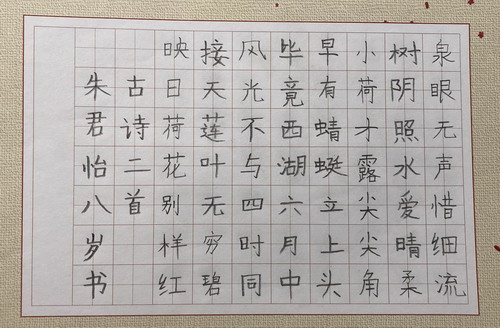 泉眼无声惜细流
树阴照水爱晴柔
小荷才露尖尖角
早有蜻蜓立上头
毕竟西湖六月中
风光不与四时同
接天莲叶无穷碧
映日荷花别样红
古诗二首
朱君怡八岁书